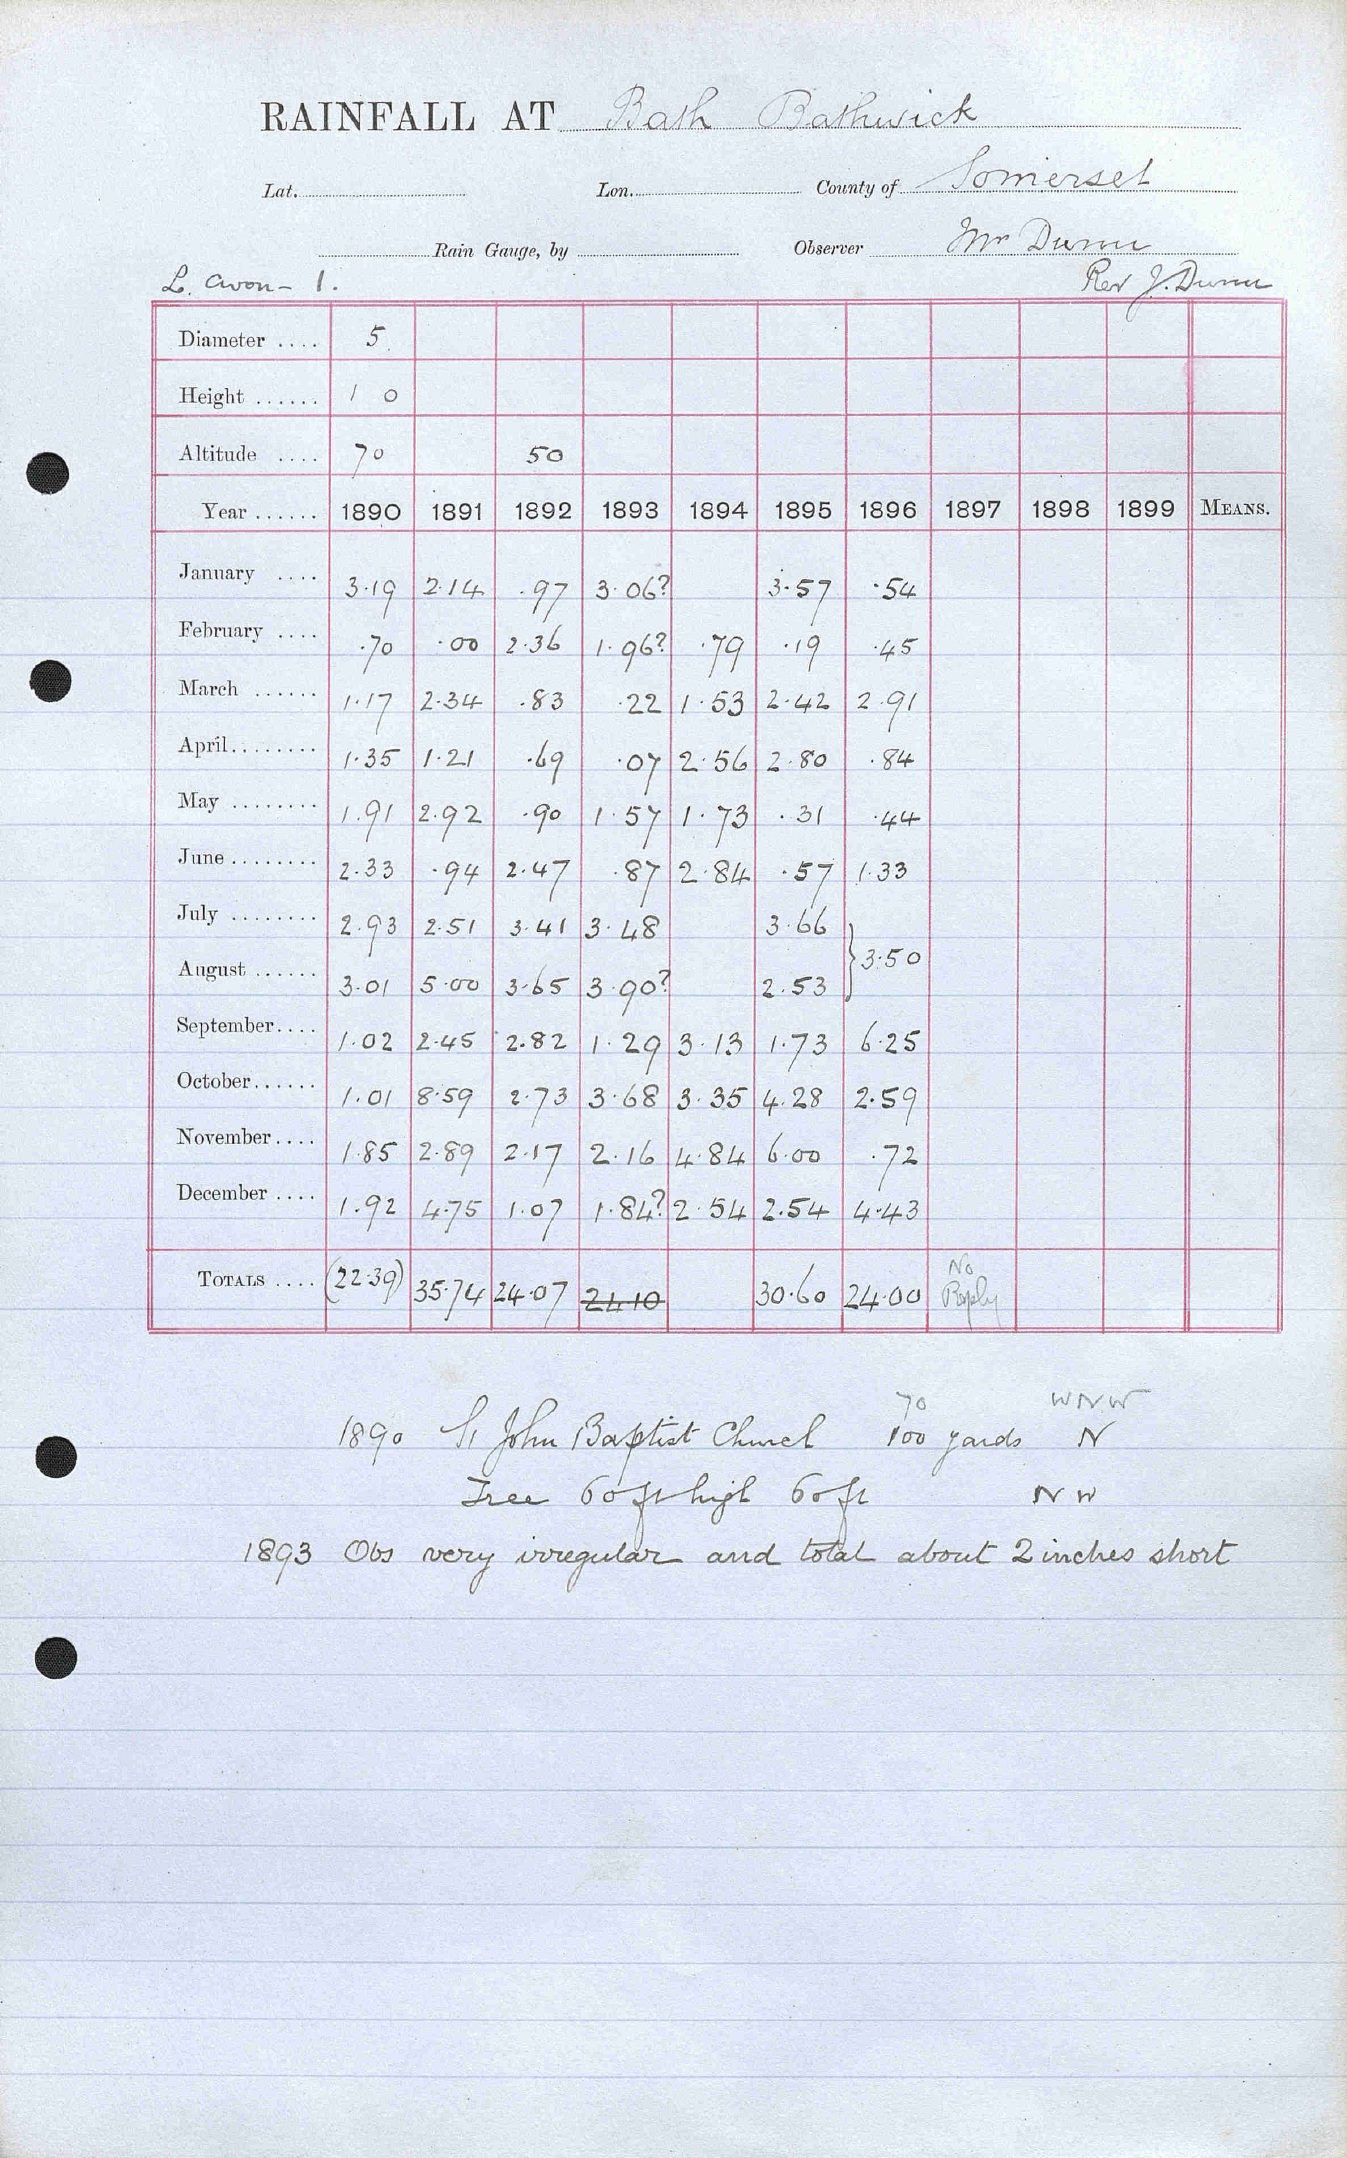 RAINFALL AT Bath Bathwick
Lat. Lon. County of Somerset
Rain Gauge, by Observer Mr Dunn
L. Avon - 1. Rev J. Dunn
Diameter .... 5
Height ...... 1 0
Altitude .... 70 50
Year ...... 1890 1891 1892 1893 1894 1895 1896 1897 1898 1899 MEANS.
January .... 3.19 2.14 .97 3.06? 3.57 .54
February .... .70 .00 2.36 1.96? .79 .19 .45
March ...... 1.17 2.34 .83 .22 1.53 2.42 2.91
April........ 1.35 1.21 .69 .07 2.56 2.80 .84
May ........ 1.91 2.92 .90 1.57 1.73 .31 .44
June ........ 2.33 .94 2.47 .87 2.84 .57 1.33
July ........ 2.93 2.51 3.41 3.48 3.66
} 3.50
August ...... 3.01 5.00 3.65 3.90? 2.53
September.... 1.02 2.45 2.82 1.29 3.13 1.73 6.25
October...... 1.01 8.59 2.73 3.68 3.35 4.28 2.59
November.... 1.85 2.89 2.17 2.16 4.84 6.00 .72
December .... 1.92 4.75 1.07 1.84? 2.54 2.54 4.43
TOTALS .... (22.39) 35.74 24.07 24.10 30.60 24.00 No Reply
70 WNW
1890 St John Baptist Church 100 yards N
Tree 60 ft high 60 ft NW
1893 Obs very irregular and total about 2 inches short